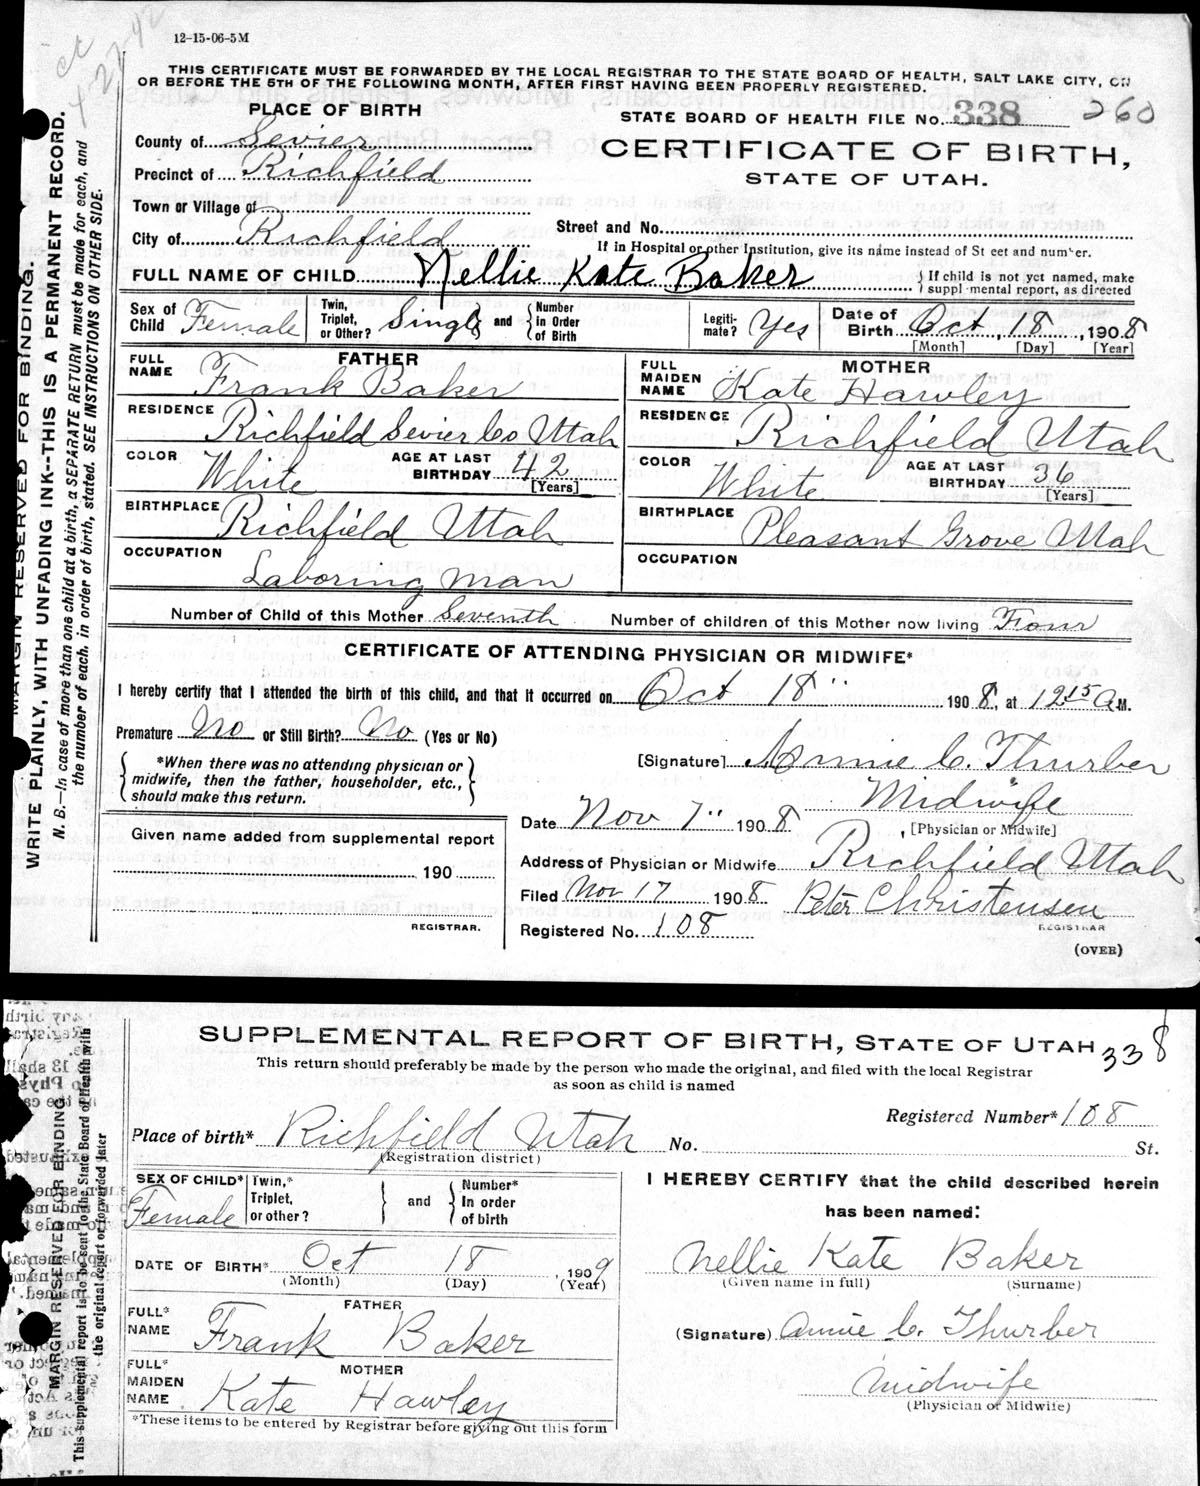 ct
4-27-42
12-15-06-5M
THIS CERTIFICATE MUST BE FORWARDED BY THE LOCAL REGISTRAR TO THE STATE BOARD OF HEALTH, SALT LAKE CITY, ON
OR BEFORE THE 5TH OF THE FOLLOWING MONTH, AFTER FIRST HAVING BEEN PROPERLY REGISTERED.
PLACE OF BIRTH
STATE BOARD OF HEALTH FILE No. 338 260
County of Sevier
CERTIFICATE OF BIRTH,
Precinct of Richfield
STATE OF UTAH.
Town or Village of
Street and No.
City of Richfield
If in Hospital or other Institution, give its name instead of St eet and number.
FULL NAME OF CHILD Nellie Kate Baker
If child is not yet named, make
suppl mental report, as directed
Sex of Child Female
Twin, Triplet, or Other? Single and Number in Order of Birth
Legiti-mate? Yes
Date of Birth Oct, 18, 1908
[Month] [Day] [Year]
FATHER
FULL NAME Frank Baker
RESIDENCE Richfield Sevier Co Utah
COLOR White AGE AT LAST BIRTHDAY 42
[Years]
BIRTHPLACE Richfield Utah
OCCUPATION Laboring man
MOTHER
FULL MAIDEN NAME Kate Hawley
RESIDENCE Richfield Utah
COLOR White AGE AT LAST BIRTHDAY 36
[Years]
BIRTHPLACE Pleasant Grove Utah
OCCUPATION
Number of Child of this Mother Seventh Number of children of this Mother now living Four
CERTIFICATE OF ATTENDING PHYSICIAN OR MIDWIFE*
I hereby certify that I attended the birth of this child, and that it occurred on Oct 18" 1908, at 12 15 A M.
Premature No or Still Birth? No (Yes or No)
*When there was no attending physician or
midwife, then the father, householder, etc.,
should make this return.
[Signature] Annie C. Thurber
Midwife
[Physician or Midwife]
Date Nov 7" 1908
Address of Physician or Midwife Richfield Utah
Filed Nov 17 1908 Peter Christensen
REGISTRAR
Registered No. 108
(OVER)
Given name added from supplemental report
190
REGISTRAR.
MARGIN RESERVED FOR BINDING.
WRITE PLAINLY, WITH UNFADING INK--THIS IS A PERMANENT RECORD.
N. B.—In case of more than one child at a birth, a SEPARATE RETURN must be made for each, and
the number of each, in order of birth, stated. SEE INSTRUCTIONS ON OTHER SIDE.
SUPPLEMENTAL REPORT OF BIRTH, STATE OF UTAH 338
This return should preferably be made by the person who made the original, and filed with the local Registrar
as soon as child is named
Registered Number* 108
Place of birth* Richfield Utah No. St.
(Registration district)
SEX OF CHILD* Female
Twin,* Triplet, or other? and Number* In order of birth
DATE OF BIRTH* Oct 18, 1909
(Month) (Day) (Year)
FATHER
FULL* NAME Frank Baker
MOTHER
FULL* MAIDEN NAME Kate Hawley
*These items to be entered by Registrar before giving out this form
I HEREBY CERTIFY that the child described herein
has been named:
Nellie Kate Baker
(Given name in full) (Surname)
(Signature) Annie C. Thurber
Midwife
(Physician or Midwife)
MARGIN RESERVED FOR BINDING
This supplemental report is to be sent to the State Board of Health with
the original report or forwarded later